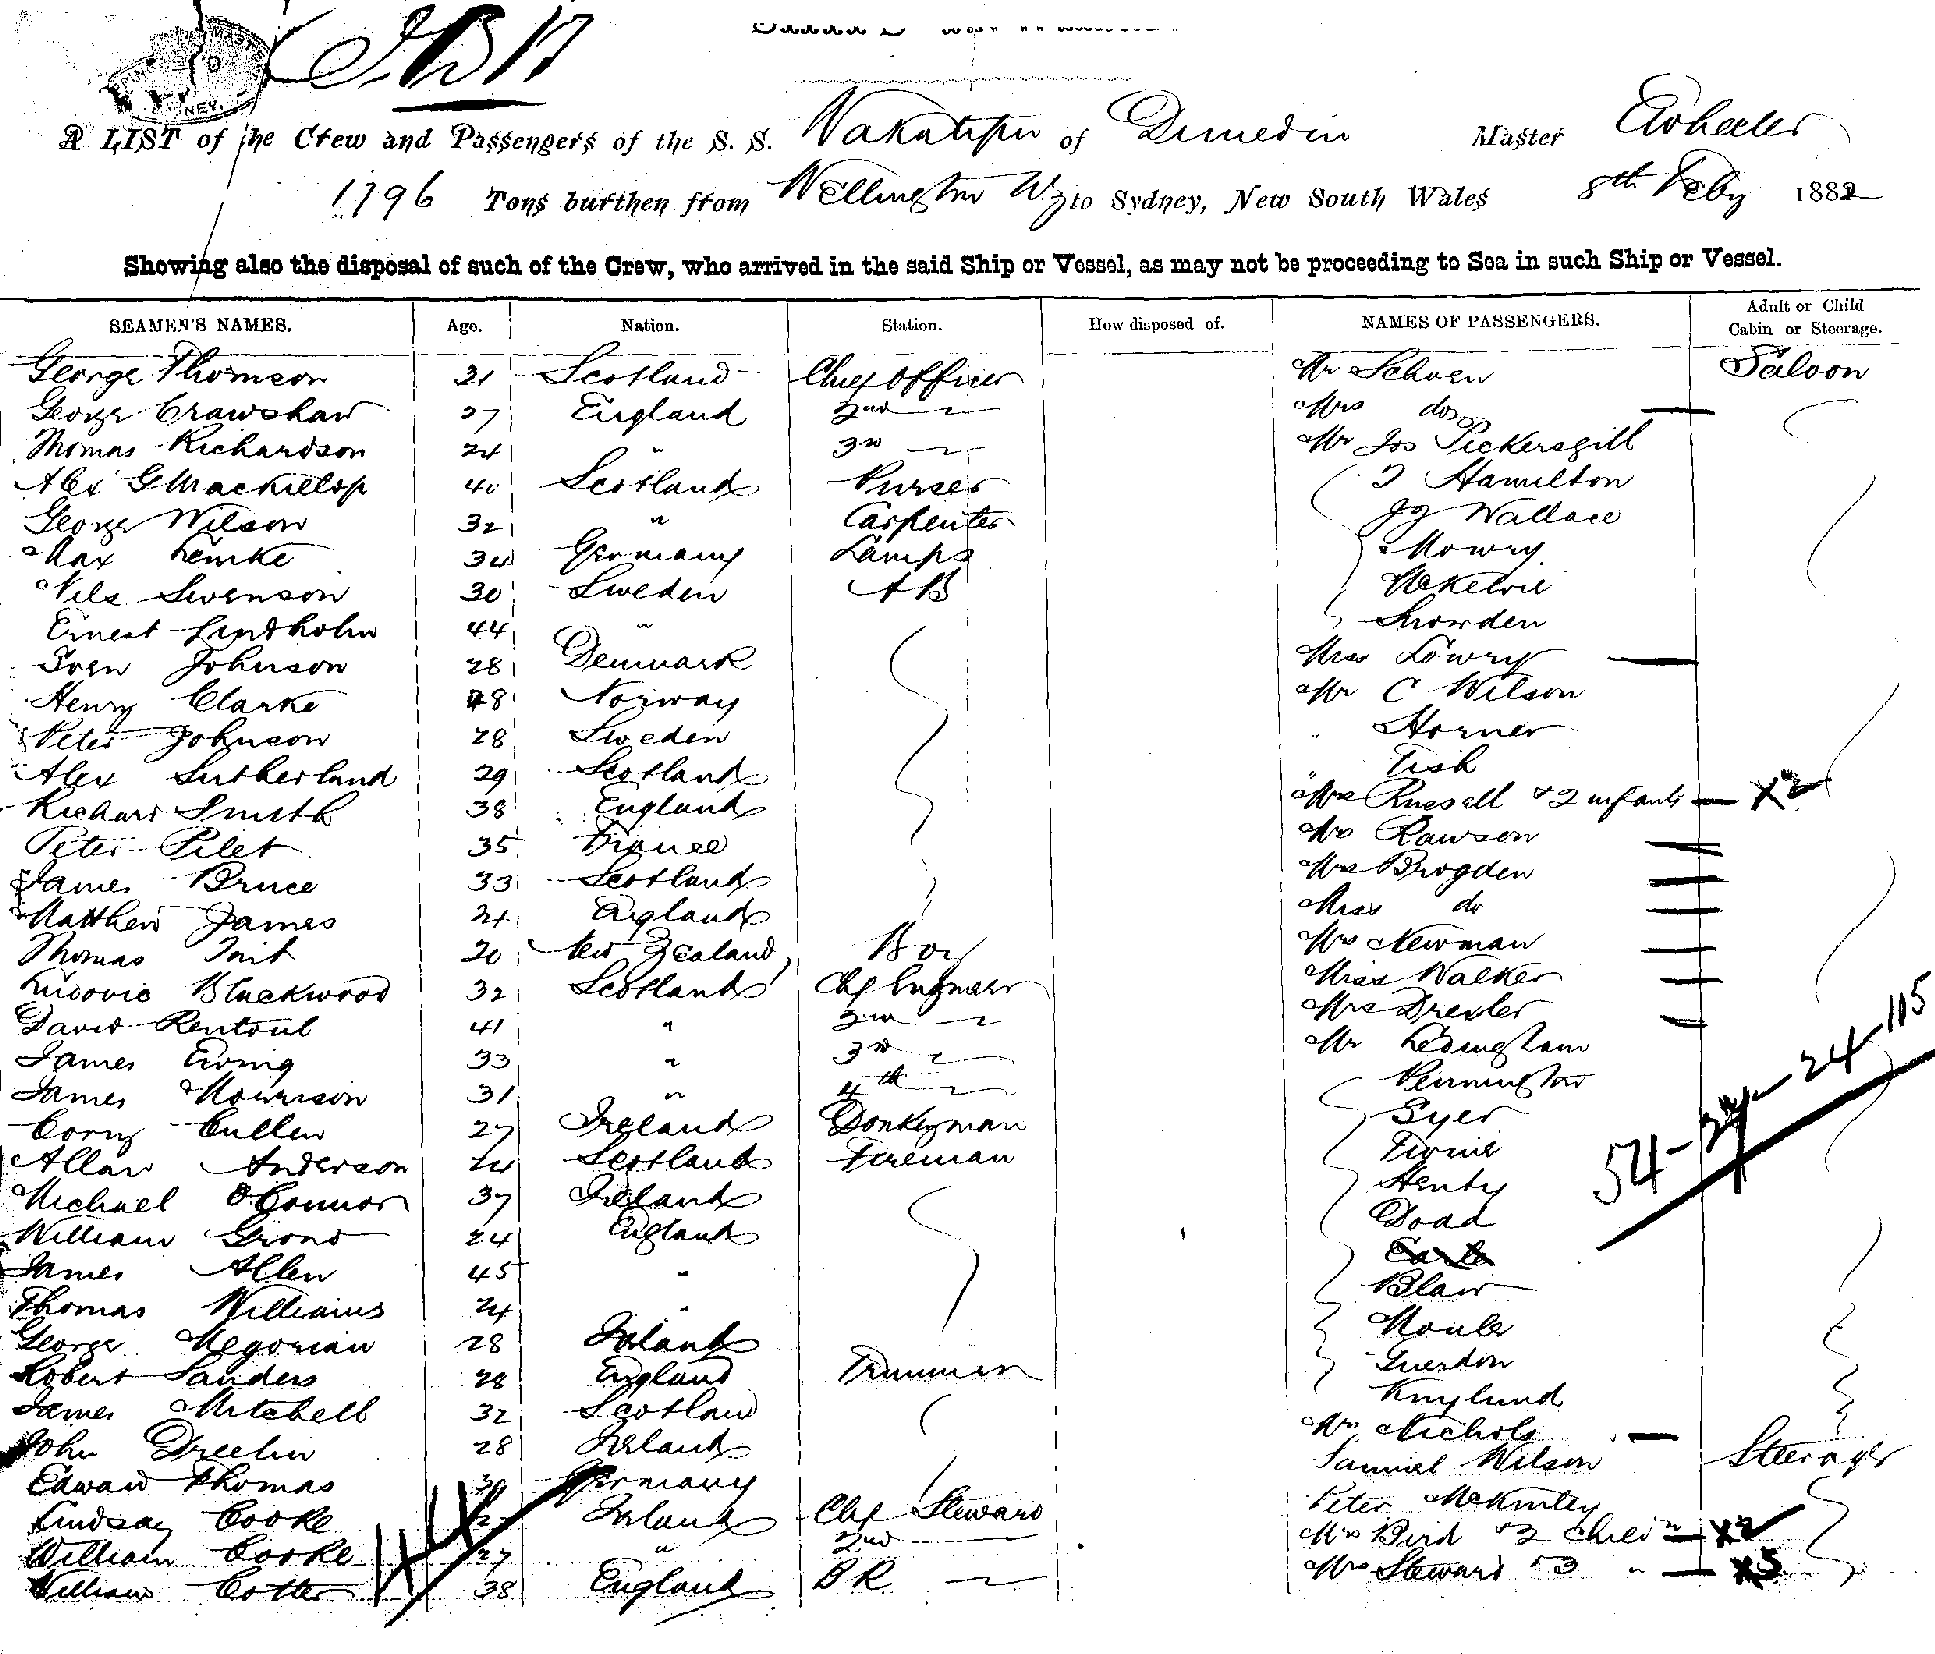 A LIST of the Crew and Passengers of the S. S. Wakatipu of Dunedin Master Wheeler
1796 Tons burthen from Wellington NZ to Sydney, New South Wales 8th Feby 1882
Showing also the disposal of such of the Crew, who arrived in the said Ship or Vessel, as may not be proceeding to Sea in such Ship or Vessel.
SEAMEN'S NAMES. Age. Nation. Station. How disposed of. NAMES OF PASSENGERS. Adult or Child Cabin or Steerage.
George Thomson 31 Scotland Chief Officer Mr Schoen Saloon
George Crawshaw 27 England 2nd " Mrs do
Thomas Richardson 24 " 3rd " Mr Jos Pickersgill
Alex G Mackillop 40 Scotland Purser J Hamilton
George Wilson 32 " Carpenter Jg Wallace
Max Lemke 34 Germany Lamps Mowry
Nils Swenson 30 Sweden AB McKelvie
Ernest Lindholm 44 " Snowden
Sven Johnson 28 Denmark Miss Lowry
Henry Clarke 48 Norway Mr C Wilson
Peter Johnson 28 Sweden Horner
Alex Sutherland 29 Scotland Fish
Richard Smith 38 England Mrs Russell & 2 infants X2
Peter Pilet 35 France Mrs Rawson
James Bruce 33 Scotland Mrs Brogden
Matthew James 24 England Miss do
Thomas Tait 20 New Zealand Boy Mrs Newman
Ludovic Blackwood 32 Scotland Chf Engineer Miss Walker
David Rentoul 41 " 2nd " Mrs Drexler
James Ewing 33 " 3rd " Mr Ledingham
James Morrison 31 " 4th " Pennington
Corny Cullen 27 Ireland Donkeyman Syer
Allan Anderson 24 Scotland Fireman
Michael O'Connor 37 Ireland Henty
William Grono 24 England Doad
James Allen 45 "
Thomas Williams 24 " Blair
George Megorian 28 Ireland Moule
Robert Sanders 28 England Trimmer Guerdon
James Mitchell 32 Scotland
John Dreelin 28 Ireland Mrs Nichols
Edward Thomas 30 Germany Samuel Wilson Steerage
Lindsay Cooke Ireland Chf Steward Peter McKinley
William Cooke 27 " 2nd Mrs Bird & 2 child X2
William Cotter 38 England BR " Mrs Steward & 3 " X3